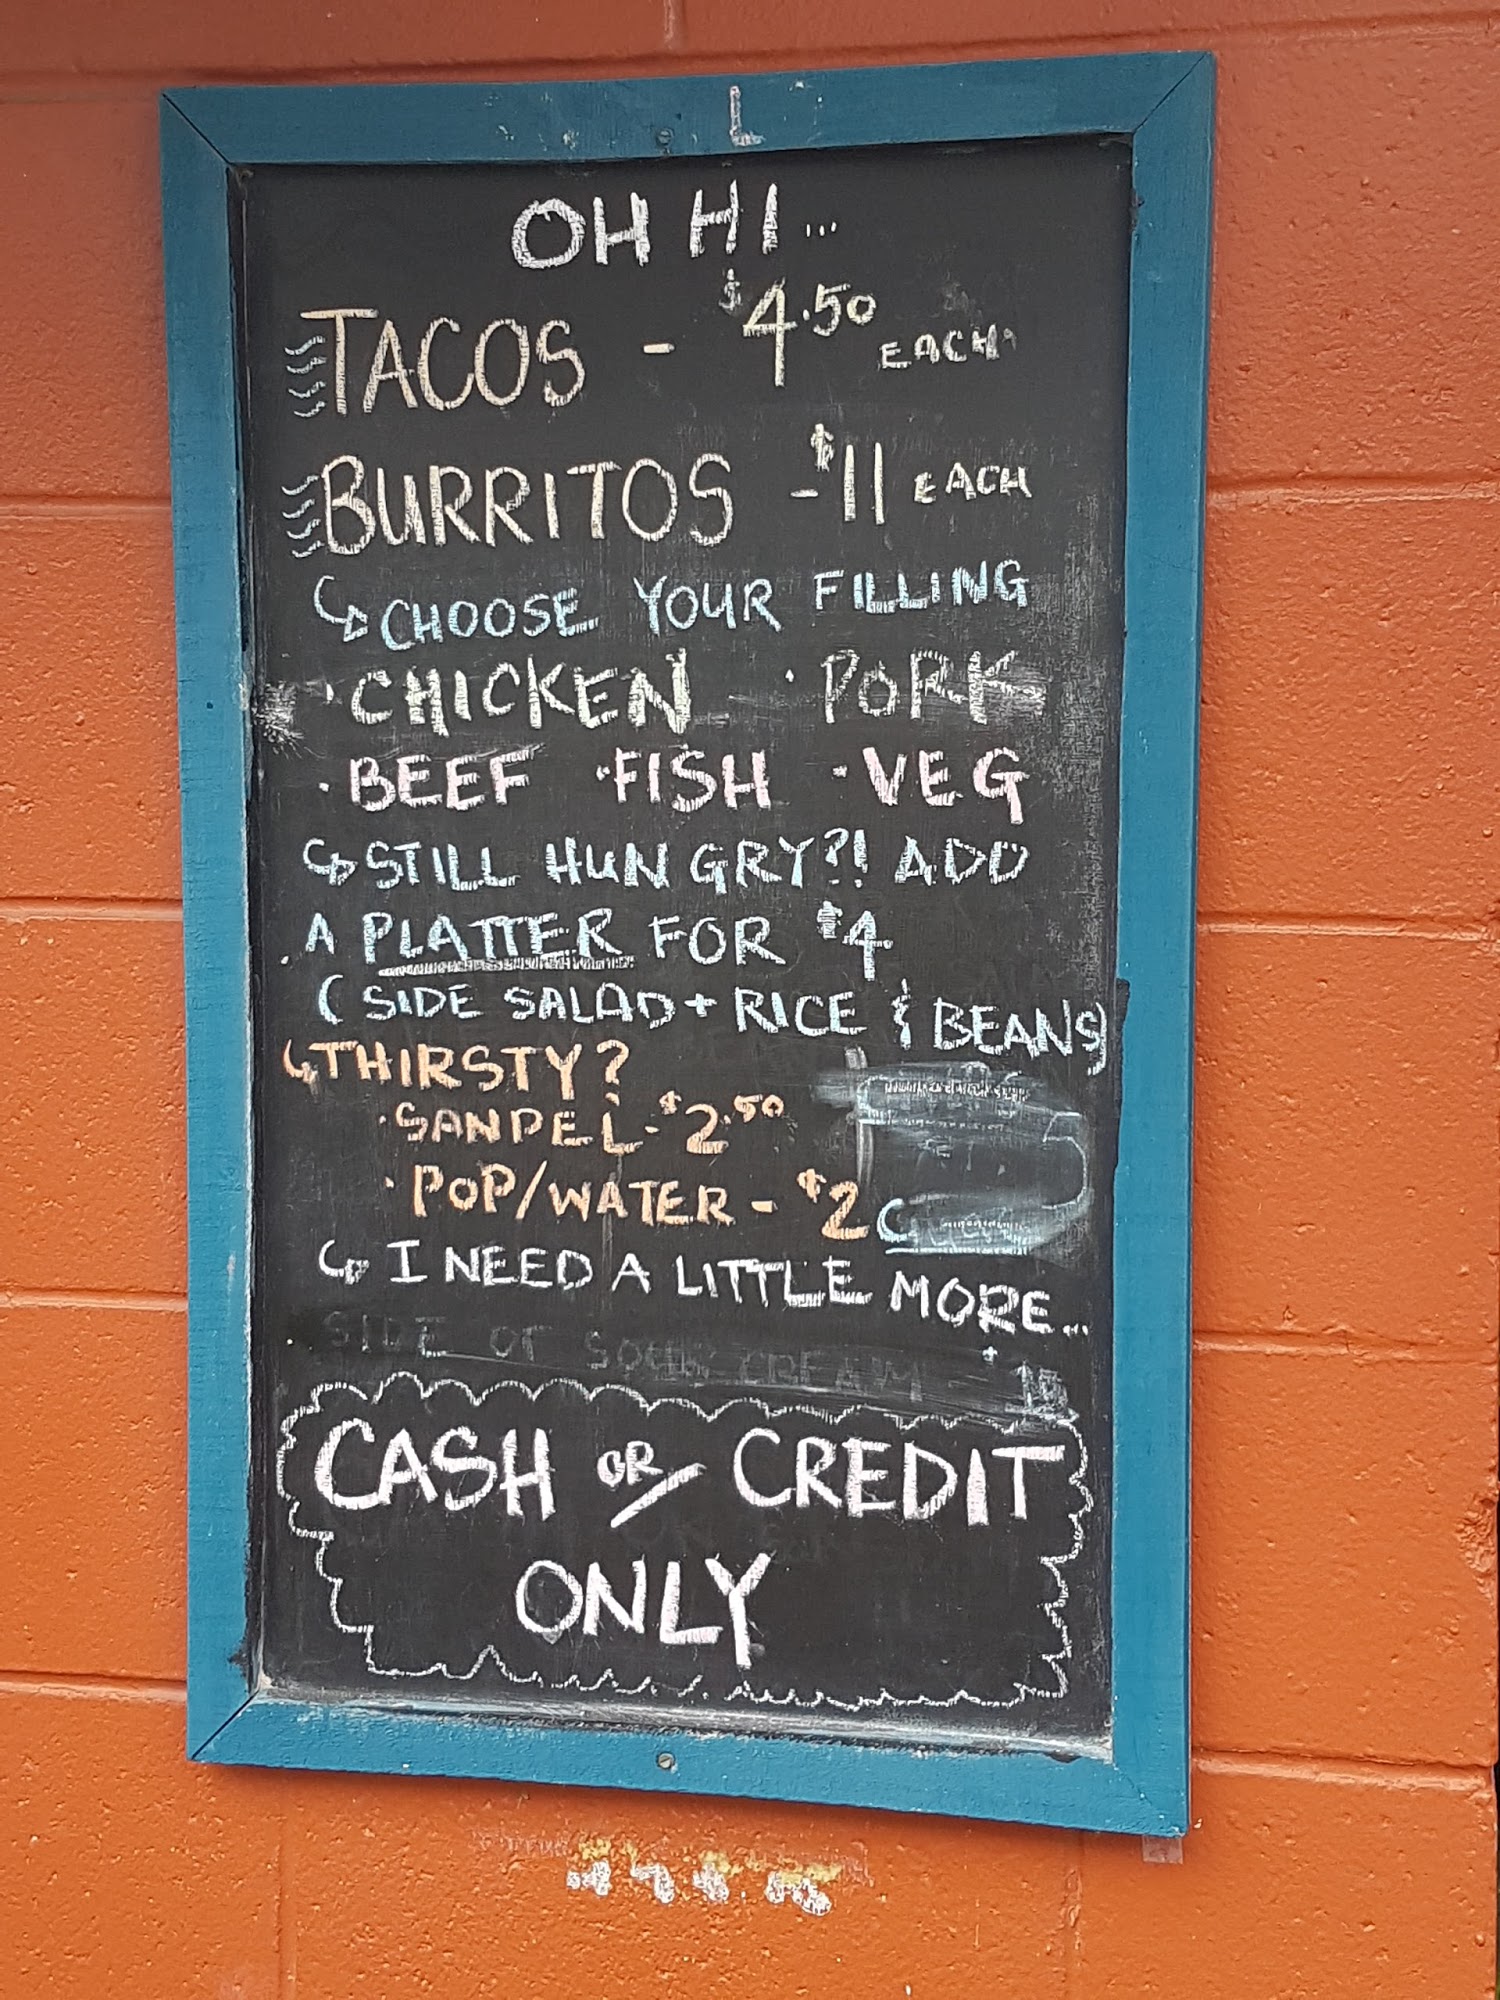 L
OH HI...
TACOS - $4.50 EACH
BURRITOS - $11 EACH
CHOOSE YOUR FILLING
· CHICKEN · PORK
· BEEF · FISH · VEG
STILL HUNGRY?! ADD
A PLATTER FOR $4
(SIDE SALAD + RICE & BEANS)
THIRSTY?
· SANPEL - $2.50
· POP/WATER - $2
I NEED A LITTLE MORE...
SIDE OF SOUR CREAM -
CASH OR CREDIT
ONLY